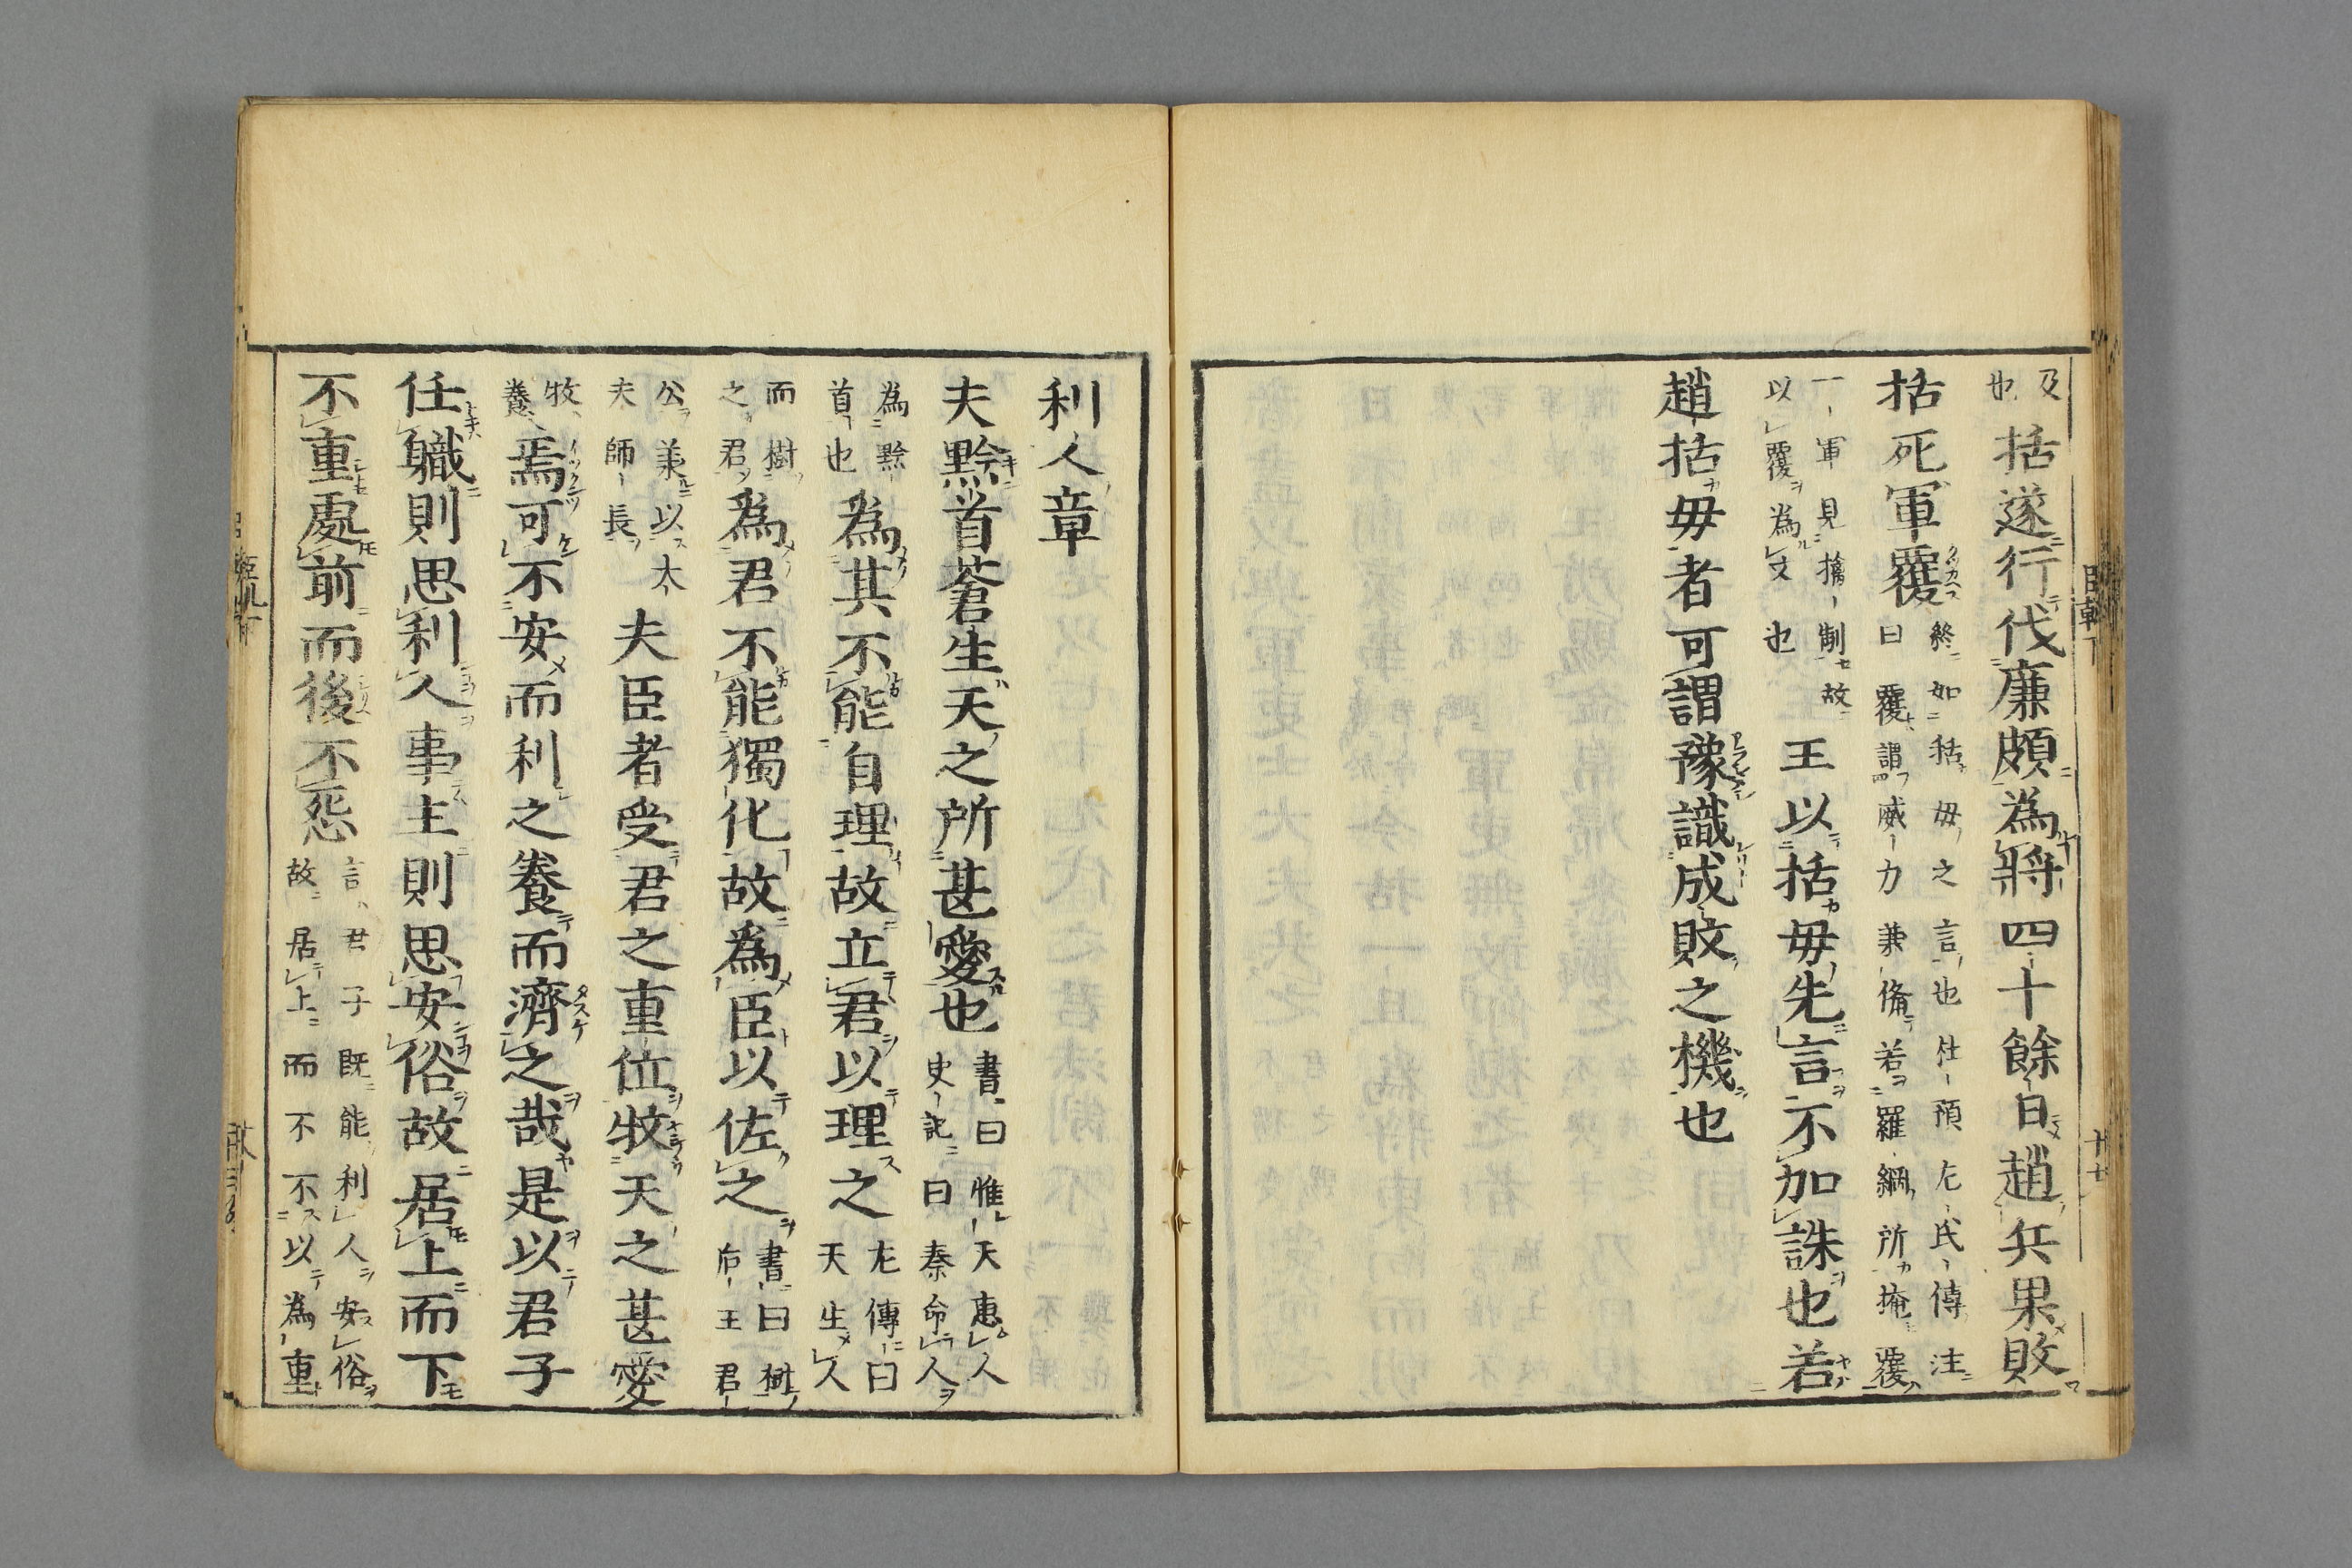 及
也
括遂行代廉頗為將四十餘日趙兵果敗
括死軍覆
終如括母之言也杜預左氏傳注
曰覆謂威力兼備若羅網所掩覆
一軍見擒制故
以覆為文也
王以括母先言不加誅也若
趙括母者可謂豫識成敗之機也
利人章
夫黔首蒼生天之所甚愛也
書曰惟天惠人
史記曰秦命人
為黔
首也
為其不能自理故立君以理之
左傳曰
天生人
而樹
之君
為君不能獨化故為臣以佐之
書曰樹
后王君
公兼以大
夫師長
夫臣者受君之重位牧天之甚愛
牧
養
焉可不安而利之養而濟之哉是以君子
任職則思利人事主則思安俗故居上而下
不重處前而後不怨
言君子既能利人安俗
故居上而不不以為重